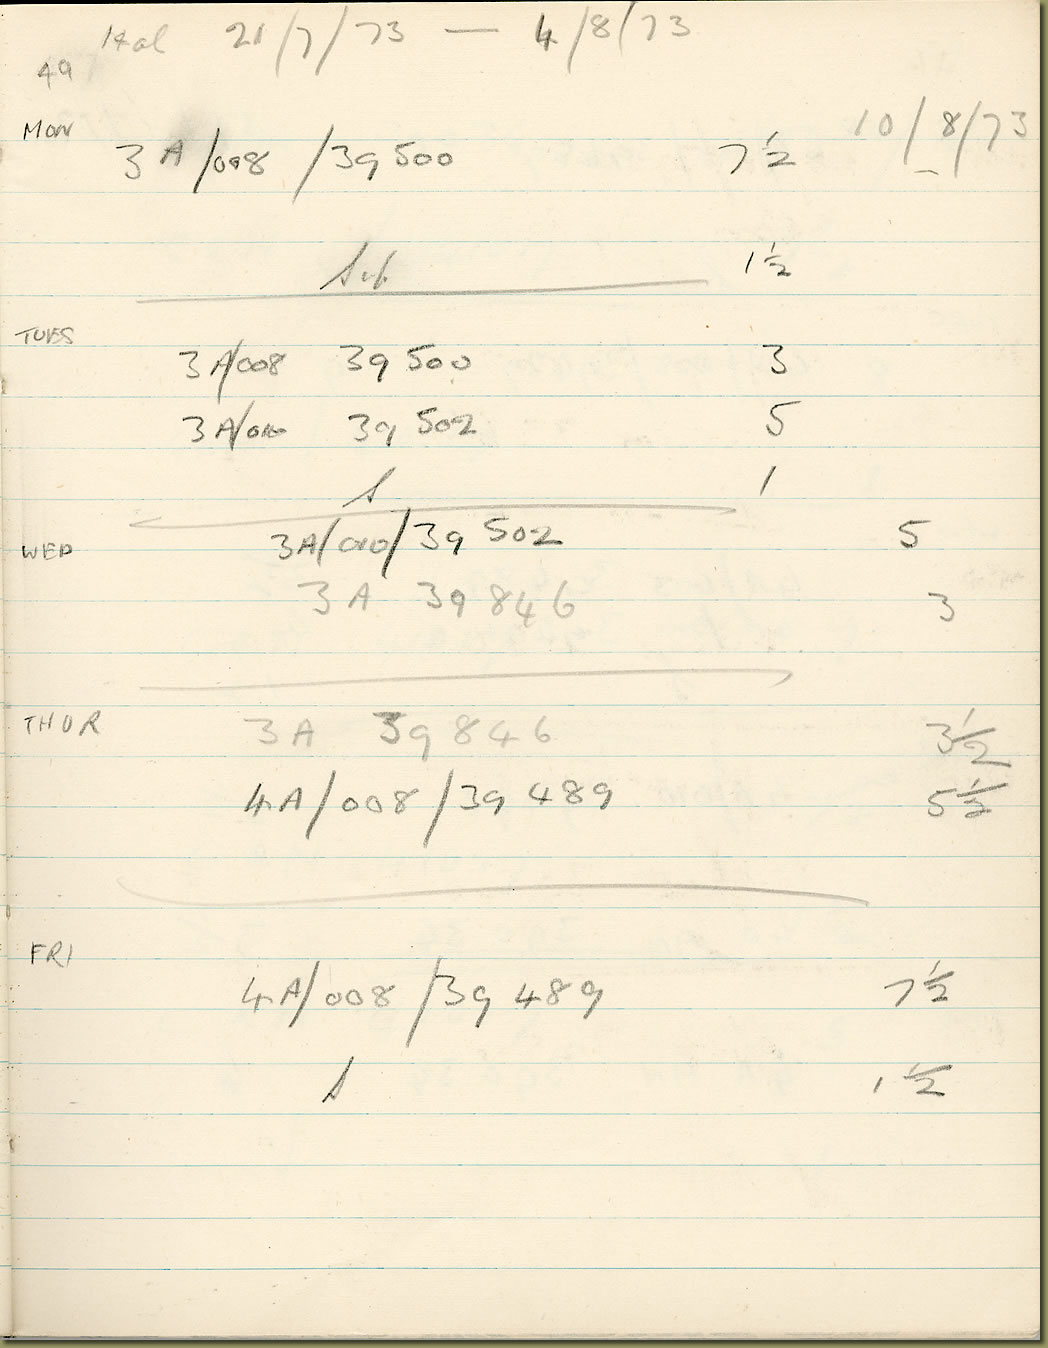 Hol 21/7/73 — 4/8/73
49
MON 10/8/73
3A/008/39500 7½
1½
TUES
3A/008 39500 3
3A/010 39502 5
S 1
WED 3A/010/39502 5
3A 39846 3
THUR 3A 39846 3½
4A/008/39489 5½
FRI
4A/008/39489 7½
S 1½